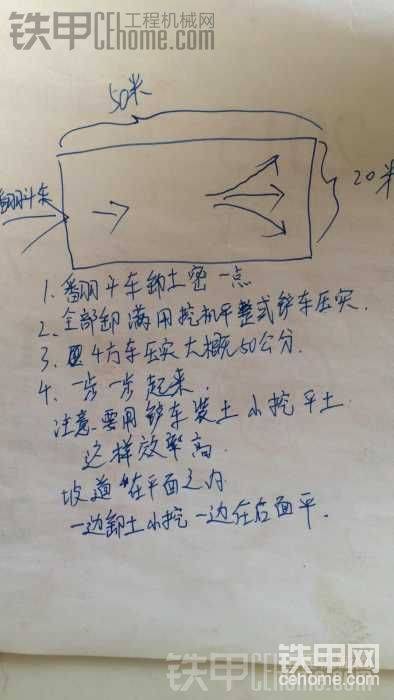 铁甲 工程机械网
CEhome.com
50米
20米
翻斗车
1. 翻斗车卸土密一点
2. 全部卸满用挖机平整或铲车压实.
3. 四方车压实大概50公分.
4. 一步一步起来.
注意.要用铲车装土小挖平土
这样效率高.
坡道在平面之内
一边卸土小挖一边在右面平.
铁甲CEhome.com
铁甲网
cehome.com